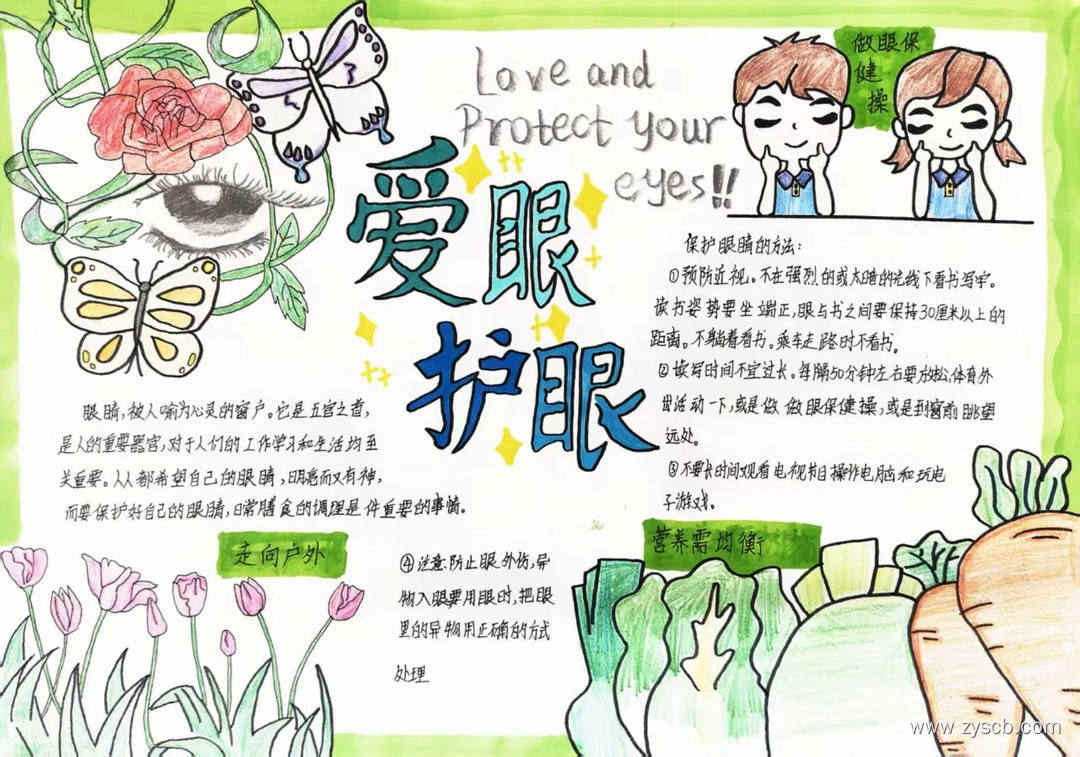 Love and
Protect your
eyes!!
爱眼
护眼
做眼保
健
操
保护眼睛的方法:
①预防近视。不在强烈的或太暗的光线下看书写字。
读书姿势要坐端正,眼与书之间要保持30厘米以上的
距离。不躺着看书。乘车走路时不看书。
②读写时间不宜过长。每隔50分钟左右要放松,体育外
出活动一下,或是做做眼保健操,或是到窗前眺望
远处。
③不要长时间观看电视节目操作电脑和玩电
子游戏。
眼睛,被人喻为心灵的窗户。它是五官之首,
是人的重要器官,对于人们的工作学习和生活均至
关重要。人人都希望自己的眼睛,明亮而又有神,
而要保护好自己的眼睛,日常膳食的调理是件重要的事情。
走向户外
④注意防止眼外伤,异
物入眼要用眼时,把眼
里的异物用正确的方式
处理
营养需均衡
www.zyscb.com